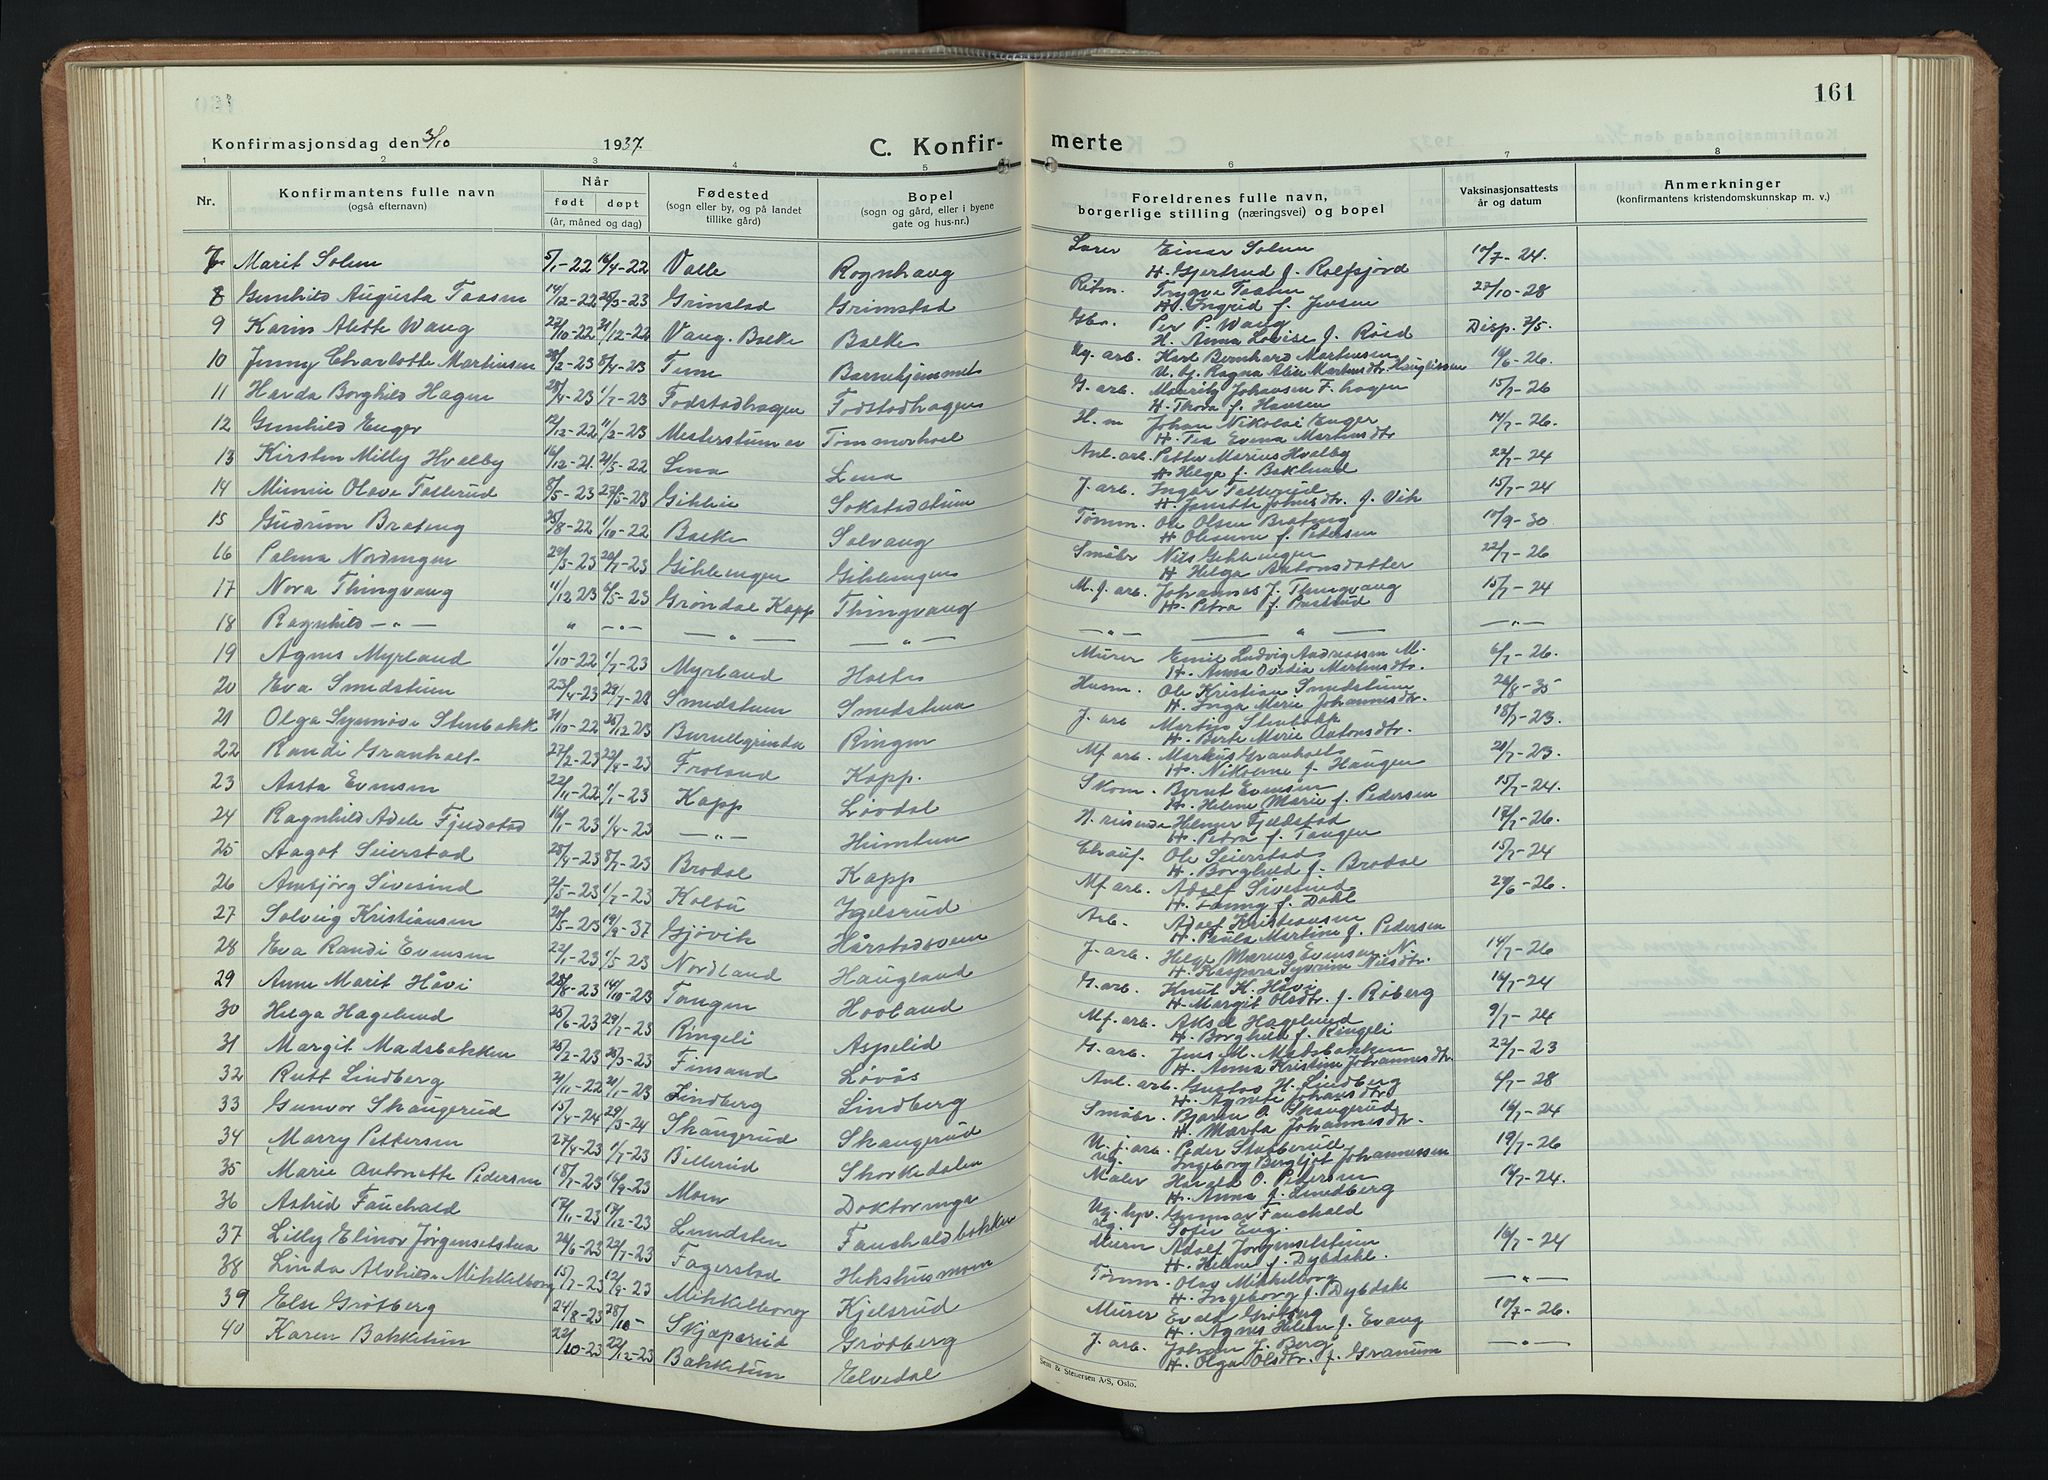 161
Konfirmasjonsdag den 3/10 1937. C. Konfir- merte
1 2 3 4 5 6 7 8
Nr. Konfirmantens fulle navn (også efternavn) Når født døpt (år, måned og dag) Fødested (sogn eller by, og på landet tillike gård) Bopel (sogn og gård, eller i byene gate og hus-nr.) Foreldrenes fulle navn, borgerlige stilling (næringsvei) og bopel Vaksinasjonsattests år og datum Anmerkninger (konfirmantens kristendomskunnskap m. v.)
7 Marit Solem 5/1-22 16/4-22 Valle Rognhaug Lærer Einar Solem 10/7-24.
H. Gjertrud f. Rolfsjord
8 Gunhild Augusta Taasen 14/12-22 Grimstad Grimstad Ritm. Trygve Taasen 27/10-28
H. Ingrid f. Jensen
9 Karin Alette Waug 22/10-22 Vaug. Balke Balke Gbr. Per P. Waug Disp. 7/5.
H. Anna Lovise f. Røed
10 Jenny Charlotte Martinsen Tune Barnehjemmet Ug. arb. Karl Bernhard Martinsen 16/6-26.
Ragna Alise Martinsdtr.
11 Harda Borghild Hagen 28/4-23 1/7-23 Fodstadhagen Fodstadhagen G. arb. Mauritz Johansen F. hagen 15/7-26
H. Thora f. Hansen
12 Gunhild Enger 12/12-22 11/2-23 Tømmerhoel H. m Johan Nikolai Enger 14/7-26.
H. Tea Evena Martinsdtr
13 Kirsten Milly Hvalby 16/12-21. 21/5-22 Lena Lena Anl. arb. Petter Marius Hvalby 22/7-24
H. Helga f. Baklund
14 Minnie Olave Tollerud 8/5-23 27/5-23 Gihlein Sokstadstuen J. arb. Ingar Tollerud 15/7-24
H. Janette Johnsdtr. f. Vik
15 Gudrun Brateng 25/8-22 1/10-22 Balke Solvang Tømm. Ole Olsen Brateng 10/9-30
H Olesine f. Petersen
16 Palma Nordengen 29/3-23 20/7-23 Gihlengen Gihlengen Småbr Nils Gihlengen 22/7-26
H Helga Antonsdotter
17 Nora Thingvang 11/12 23 6/5-23 Grøndal Kapp Thingvang M. f. arb. Johannes J. Thingvang 15/7-24
H. Petra f.
18 Ragnhild —"— " —"— —"— —"— —"— —"— —"—
19 Agnes Myrland 1/10-22 1/7-23 Myrland Murer Emil Ludvig Andreassen M. 6/7-26.
H. Anna Ovidia Martinsdtr.
20 Eva Smedstuen 23/4-23 29/7-23 Smedstuen Smedstuen Husm. Ole Kristian Smedstuen 26/8-35
H. Inga Marie Johannesdtr.
21 Olga Synnøve Stenbakk 31/10-22 Ringen J. arb Martin Stenbakk 18/7-23.
H. Berte Marie Antonsdtr.
22 Randi Granholt 27/2-23 22/4-23 Froland Kapp. Mf arb. Markus Granholt 20/7-23.
H. Nikoline f. Haugen
23 Aasta Evensen 22/11-22 1/1-23 Kapp Løvdal Skom. Bernt Evensen 15/7-24.
H. Helene Marie f. Pedersen
24 Ragnhild Adele Fjeldstad 16/1-23 1/4-23 —"— Heimtun H. reisende Helmer Fjeldstad 17/7-26.
H. Petra f. Tangen
25 Aagot Seierstad 28/4-23 8/7-23 Brodal Kapp Chauf. Ole Seierstad 15/7-24
H. Borghild f. Brodal
26 Ambjørg Sivesind 2/5-23 1/7-23 Kolbu Igelsrud Mf arb. Adolf Sivesind 29/6-26.
H. Fanny f. Dahl
27 Solveig Kristiansen 20/5-23 19/9-37 Gjøvik Hårstadsveen Arb. Adolf Kristiansen
H. Paula Martine f. Pedersen
28 Eva Randi Evensen 22/1-23 1/5-23 Nordland Haugland J. arb. Helge Marius Evensen N. 14/7-26
H. Kaspara Syverine Nilsdtr.
29 Anne Marit Håvi 28/8-23 14/10-23 Tangen Hovland G. arb. Knut K. Håvi 16/7-24
H. Margit Olsdtr. f. Røberg
30 Helga Hagelund 25/6-23 29/7-23 Ringeli Aspelid Mf. arb. Aksel Hagelund 9/7-24
H. Borghild f. Ringeli
31 Margit Madsbakken 25/2-23 25/3-23 Finsand Løvås G. arb. Jens M. Madsbakken 22/7-23
H. Anna Kristine Johannesdtr.
32 Rutt Lindberg 21/11-22 21/1-23 Lindberg Lindberg Anl. arb. Gustav H. Lindberg 6/7-28
H. Agnete Johansdtr.
33 Gunvor Skaugerud 15/4-24 29/3-24 Skaugerud Skaugerud Småbr. Bjarne O. Skaugerud 16/7-24
H. Marta Johannesdtr.
34 Marry Pettersen 27/4-23 1/7-23 Billerud Skorkedalen U. j. arb. Peder Stubberud 19/7-26
ug. Ingeborg Bergljot Johannessen
35 Marie Antonette Pedersen 18/7-23 16/9-23 Moen Doktoringa Maler Harald O. Pedersen 16/7-24.
H. Anna f. Smedberg
36 Astrid Fauchald 17/11-23 17/12-23 Lundsten Fauchaldbakken Ug. Gunnar Fauchald
ug. Sofie Eng.
37 Lilly Elinor Jørgenselstua 26/6-23 22/7-23 Fagerstad Hekshusmoen Murer Adolf Jørgenselstuen 16/7-24
H. Helene f. Dybdahl.
38 Linda Alvhilde Mikkelborg 15/7-23 12/9-23 Mikkelborg Kjelsrud Tømm. Olav Mikkelborg —"—
H. Ingeborg f. Dybdahl
39 Else Grøtberg 24/8-23 28/10- Skjæperud Grøtberg Murer Evald Grøtberg 10/7-26.
H. Agnes Helene f. Evang
40 Karen Bakketun 22/10-23 22/12-23 Bakketun Elvedal J. arb. Johan J. Berg —"—
H. Olga Olsdtr. f. Granum
Sem & Stenersen A/S, Oslo.